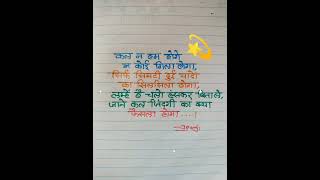 कल न हम होंगे
न कोई गिला होगा,
सिर्फ सिमटी हुई यादों
का सिलसिला होगा,
लम्हें है चलो हंसकर बिताले,
जाने कल जिंदगी का क्या
फैसला होगा ...!